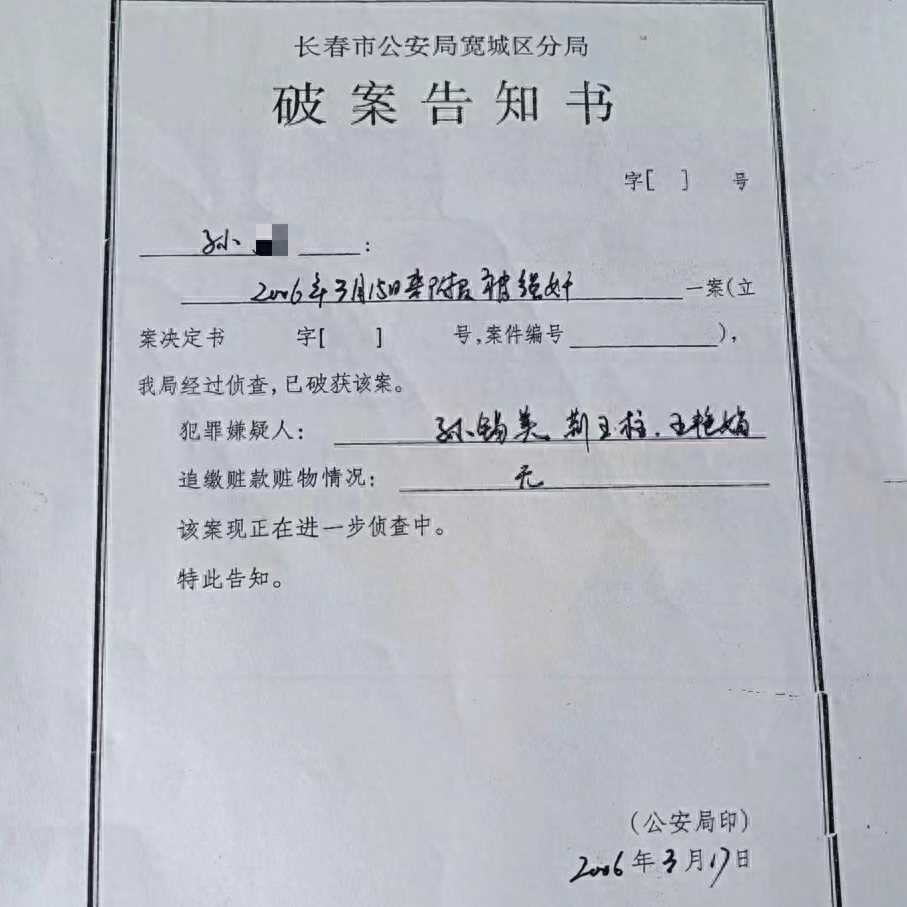 长春市公安局宽城区分局
破案告知书
字[ ] 号
孙 :
2006年3月15日 被强奸 一案(立
案决定书 字[ ] 号,案件编号 ),
我局经过侦查,已破获该案。
犯罪嫌疑人: 孙锡美 荆玉柱、王艳娟
追缴赃款赃物情况: 无
该案现正在进一步侦查中。
特此告知。
(公安局印)
2006年3月17日